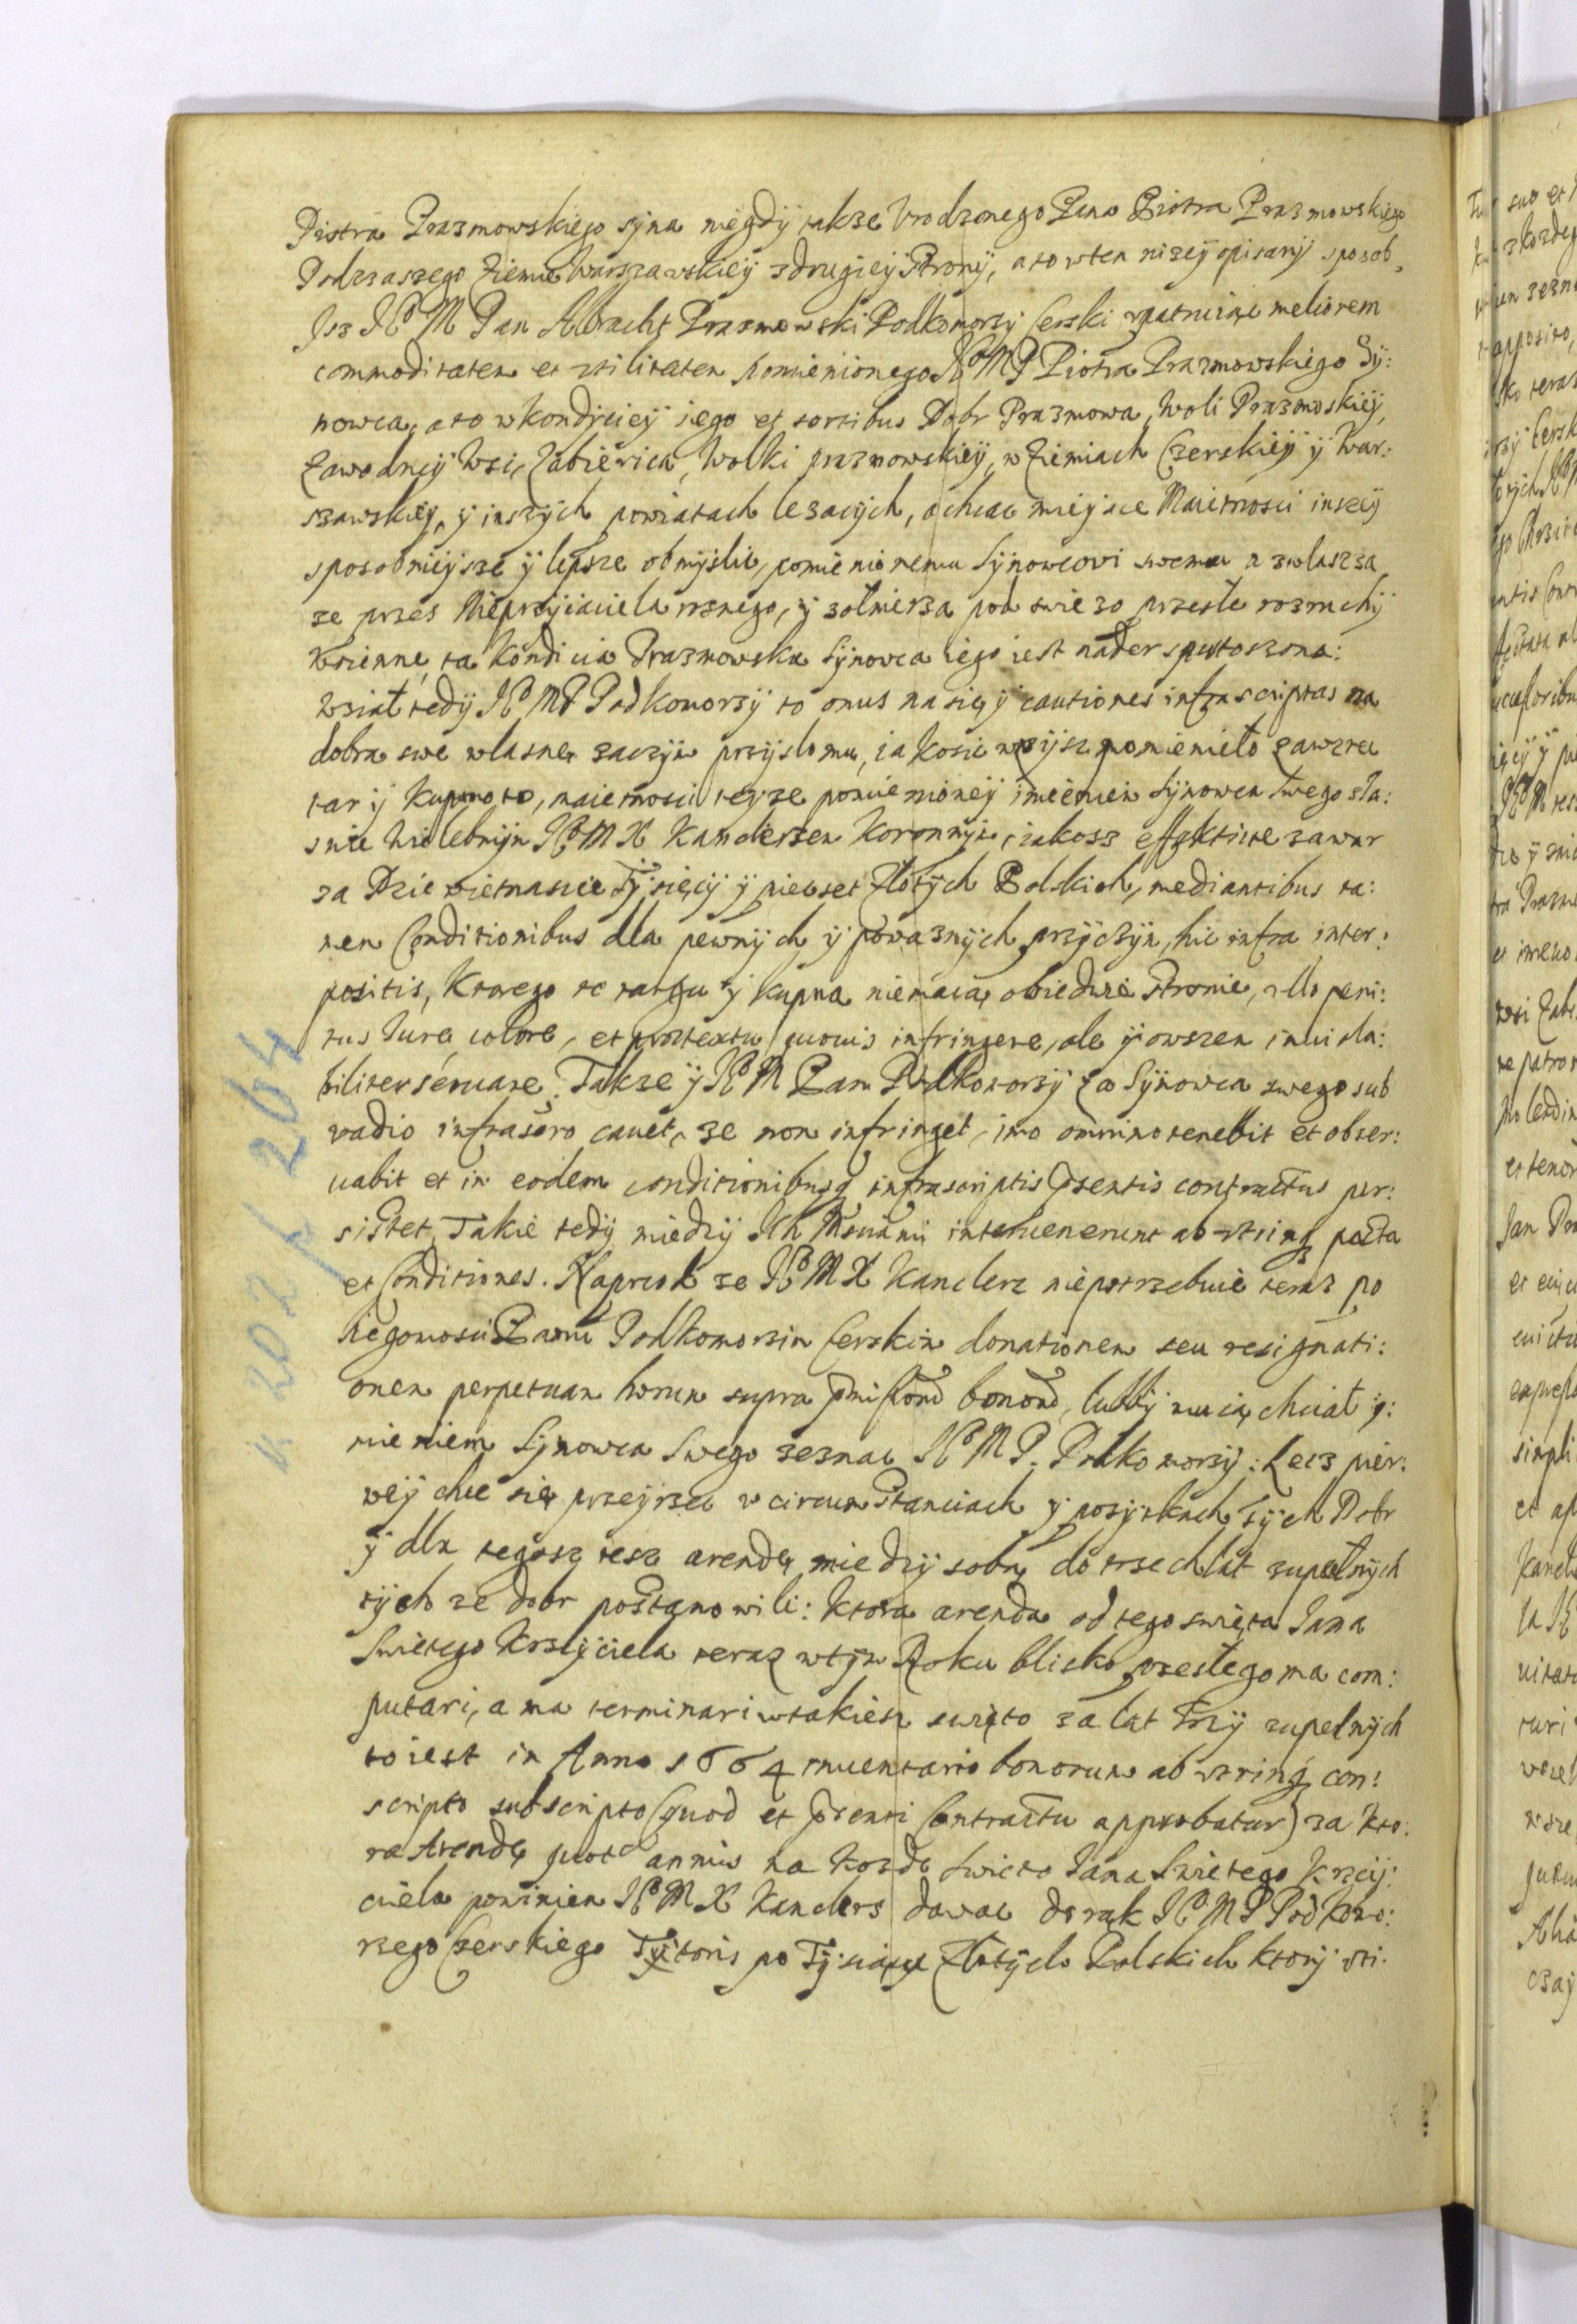 Piotra Prazmowskiego syna niegdÿ takze Vrodzonego Pana Piotra Prazmowskiego
Podczaszego Ziemie Warszawskieÿ zdrugieÿ Stronÿ, a to wten nizeÿ opisanÿ sposob,
Isz JE° M Pan Albracht Prazmowski Podkomorzÿ Cerski vpatruiąc meliorem
commoditatem et vtilitatem pomienionego JE° MP Piotra Prazmowskiego Sÿ:
nowca, a to wkondÿcieÿ iego et sortibus Dobr Prazmowa, Woli Prazmoskieÿ,
Zawodneÿ Wsi, Zabierica, Wolki prazmowskieÿ, w Ziemiach Czerskieÿ ÿ War:
szawskieÿ, ÿ inszÿch powiatach lezacÿch, a chcac mieÿsce Maietnosci inszeÿ
sposobnieÿsze ÿ lepsze obmÿslic, pomienionemu Sÿnowcovi swemu a zwlaszsza
ze przes Nieprzÿiaciela roznego, ÿ zołnierza pod swiezo przeste rozruchÿ
Woienne, ta Kondicia Prazmowska Sÿnowca iego iest nader spustoszona:
Wział tedÿ JE° MP Podkomorzÿ to onus na się ÿ cautiones infrascriptas na
dobra swe wlasne, zaczÿm przÿslo mu, iakosie wÿzÿsz pomieniło zawrzec
tar ÿ Kupno to, maietnosci teÿze pomienioneÿ imieniem Sÿnowca Swego sta:
snie Wielebnÿm JE° M X Kanclerzem Koronnÿm, iakosz effektiue zawar
za Dziewietnascie Tÿsięcÿ ÿ piecset Złotÿch Polskich, mediantibus ta:
men Conditionibus dla pewnÿch ÿ powaznÿch przÿczÿn, hic infra inter:
positis, Ktorego to targu ÿ kupna niemaią obiedwie stronie, vllo peni:
tus Iure, colore, et prætextu quouis infringere, ale ÿ owszem inuiola:
biliter seruare. Takze ÿ JE° M Pan Podkomorzÿ za Sÿnowca swego sub
vadio infraserto cauet, ze non infringet, imo omnino tenebit et obser:
uabit et in eodem conditionibusq infrascriptis Præsentis contractus per:
sistet, Takie tedÿ miedzÿ Ich Msciami interuenerunt ab vtrinq pacta
et Conditiones. Naprzod ze JE° M X Kanclerz niepotrzebuie teraz po
Jegomosci Panu Podkomorzim Cerskim donationem seu resignati:
onem perpetuam horum supra præmissorum bonorum, lubbÿ mu ią chciał ÿ:
mieniem Sÿnowca Swego zeznac JE° M P. Podkomorzÿ: Lecz pier:
weÿ chce się przeÿrzec w circumstanciach ÿ pozÿtkach tÿch Dobr
ÿ dla tegosz tesz arendę miedzÿ sobą do trzech lat zupełnÿch
tÿch ze dobr postanowili: ktora arenda od tego swięta Jana
Swietego Krzcÿciela teraz wtÿm Roku blisko przesłego ma com:
putari, a ma terminari wtakiesz swięto za lat trzÿ zupełnÿch
to iest in Anno 1664 inuentario bonorum ab vtrinq con:
scripto subscripto (quod et Præsenti Contractu approbatur) za kto:
ra Arendę quot annis na kozde Swieto Jana Swietego Krzcÿ:
ciela powinien JE° M X Kanclers dawac do rąk JE° M P Podkomo:
rzego Czerskiego Tutoris po Tÿsiącu Złotÿch Polskich ktorÿ vti:
k 202 / 204